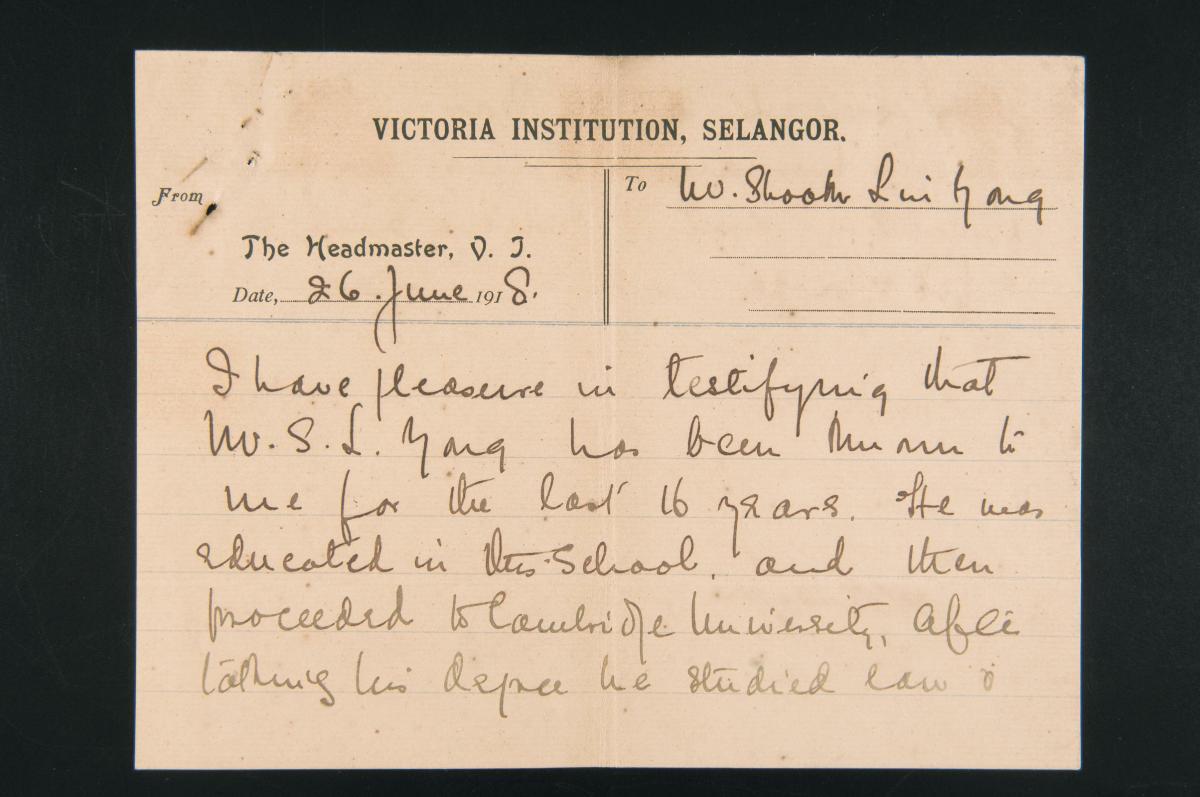 VICTORIA INSTITUTION, SELANGOR.
From
The Headmaster, V. I.
Date, 26. June 1918.
To Mr. Shook Lin Yong
I have pleasure in testifying that
Mr. S. L. Yong has been known to
me for the last 16 years. He was
educated in this School, and then
proceeded to Cambridge University, After
taking his degree he studied law &